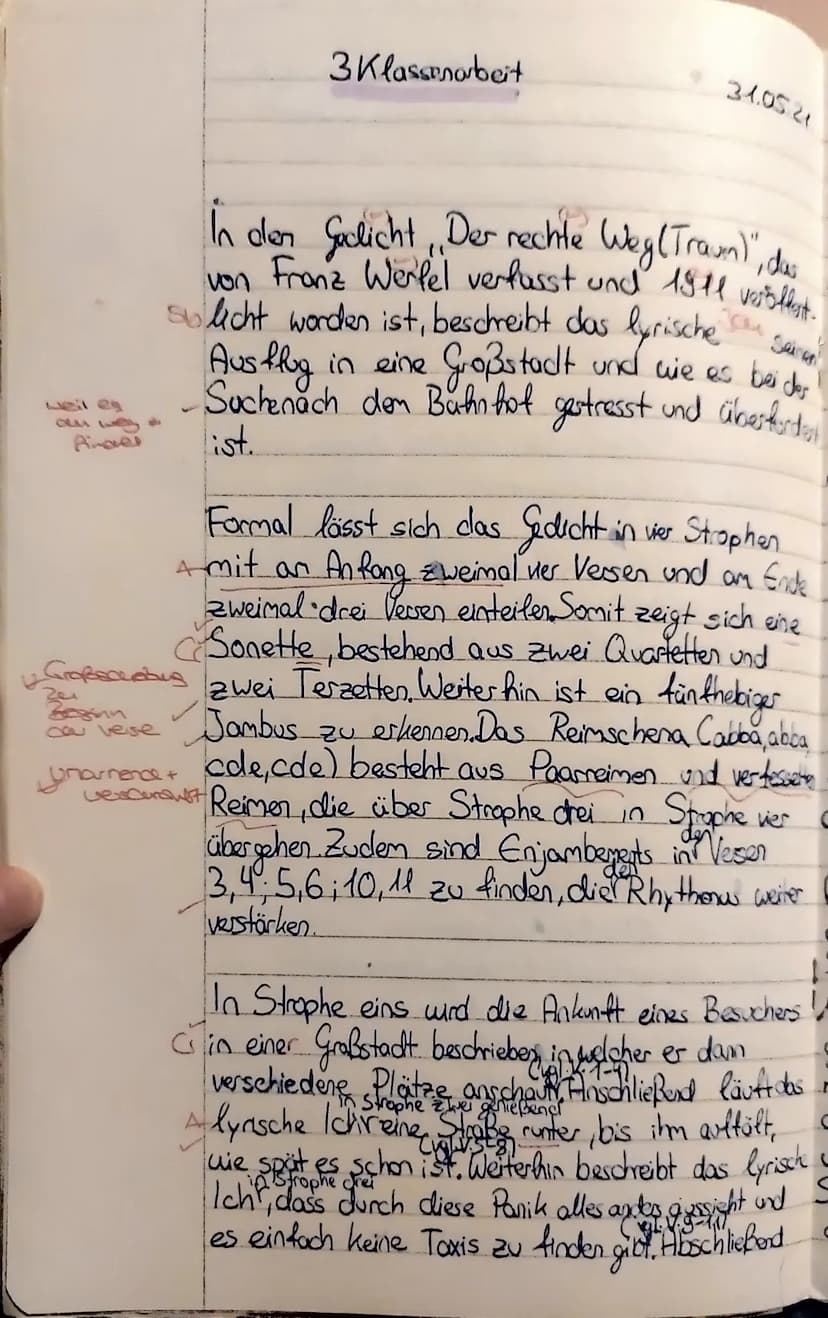 3 Klassenarbeit
31.05.21
In den Gedicht „Der rechte Weg (Traum)", das
von Franz Werfel verfasst und 1911 veröffent-
licht worden ist, beschreibt das lyrische Ich seinen
Ausflug in eine Großstadt und wie es bei der
weil es
den weg
findet
Suche nach dem Bahnhof gestresst und überfordert
ist.
Formal lässt sich das Gedicht in vier Strophen
A mit an Anfang zweimal vier Versen und am Ende
zweimal drei Versen einteilen. Somit zeigt sich eine
Sonette, bestehend aus zwei Quartetten und
Großschreibung
zu
Beginn
der Verse
zwei Terzetten. Weiterhin ist ein fünfhebiger
Jambus zu erkennen. Das Reimschema (abba, abba,
umarmende +
cde, cde) besteht aus Paarreimen und verfessete
Reimen, die über Strophe drei in Strophe vier
übergehen. Zudem sind Enjambements in den Versen
3,4; 5,6; 10,11 zu finden, die den Rhythmus weiter
verstärken.
In Strophe eins wird die Ankunft eines Besuchers
in einer Großstadt beschrieben, in welcher er dann
verschiedene Plätze anschaut (vgl. V. 1-4). Anschließend läuft das
A lyrische Ich in Strophe zwei genießend eine Straße runter, bis ihm auffällt,
wie spät es schon ist (vgl. V. 5-8). Weiterhin beschreibt das lyrisch
Ich in Strophe drei, dass durch diese Panik alles anders aussieht und
es einfach keine Taxis zu finden gibt (vgl. V. 9-11). Abschließend